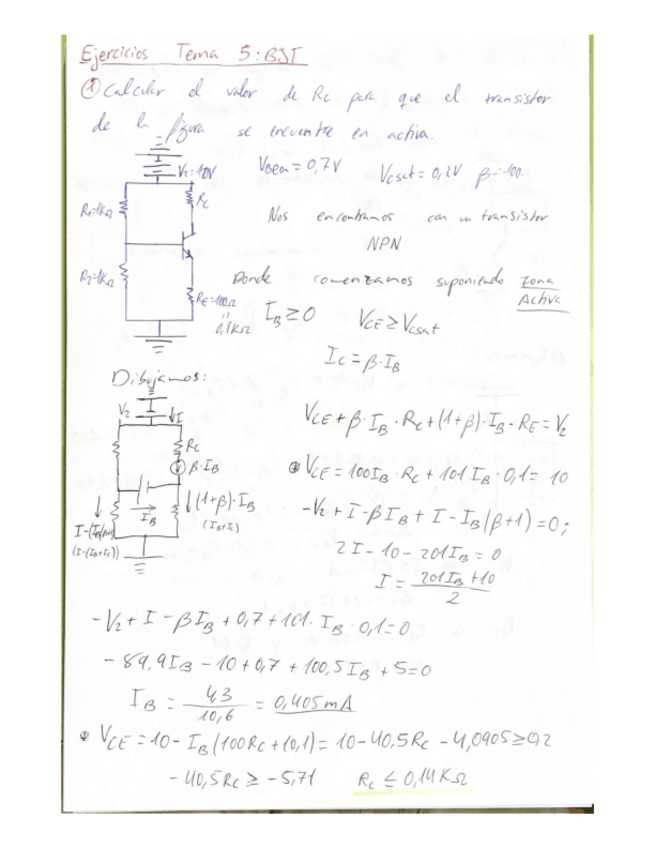 Ejercicios Tema 5: BJT
① Calcular el valor de Rc para que el transistor
de la figura se encuentre en activa.
V₂=10V
VBEon = 0,7V VCsat = 0,2V β=100
R₁=1KΩ
Rc
Nos encontramos con un transistor
NPN
R₂=1KΩ
RE=100Ω
0,1KΩ
Donde comenzamos suponiendo Zona
Activa
IB ≥ 0 VCE ≥ VCsat
Ic = β·IB
Dibujamos:
V₂ ↓I
Rc
β·IB
IB ↓(1+β)·IB
(IB+Ic)
(I-(IB+Ic))
VCE + β·IB·Rc + (1+β)·IB·RE = V₂
VCE = 100IB·Rc + 101 IB·0,1 = 10
-V₂ + I - βIB + I - IB(β+1) = 0;
2I - 10 - 201IB = 0
I = (201IB + 10) / 2
-V₂ + I - βIB + 0,7 + 101·IB·0,1 = 0
-89,9IB - 10 + 0,7 + 100,5IB + 5 = 0
IB = 4,3 / 10,6 = 0,405 mA
VCE = 10 - IB(100Rc + 10,1) = 10 - 40,5Rc - 4,0905 ≥ 0,2
-40,5Rc ≥ -5,71 Rc ≤ 0,14KΩ